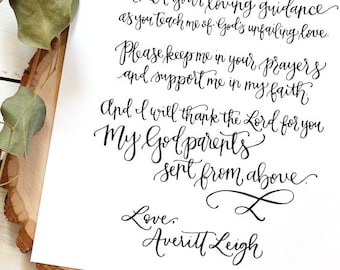 your loving guidance
as you teach me of God's unfailing love.
Please, keep me in your prayers
and support me in my faith
And I will thank the Lord for you
My Godparents
sent from above.
Love,
Averitt Leigh